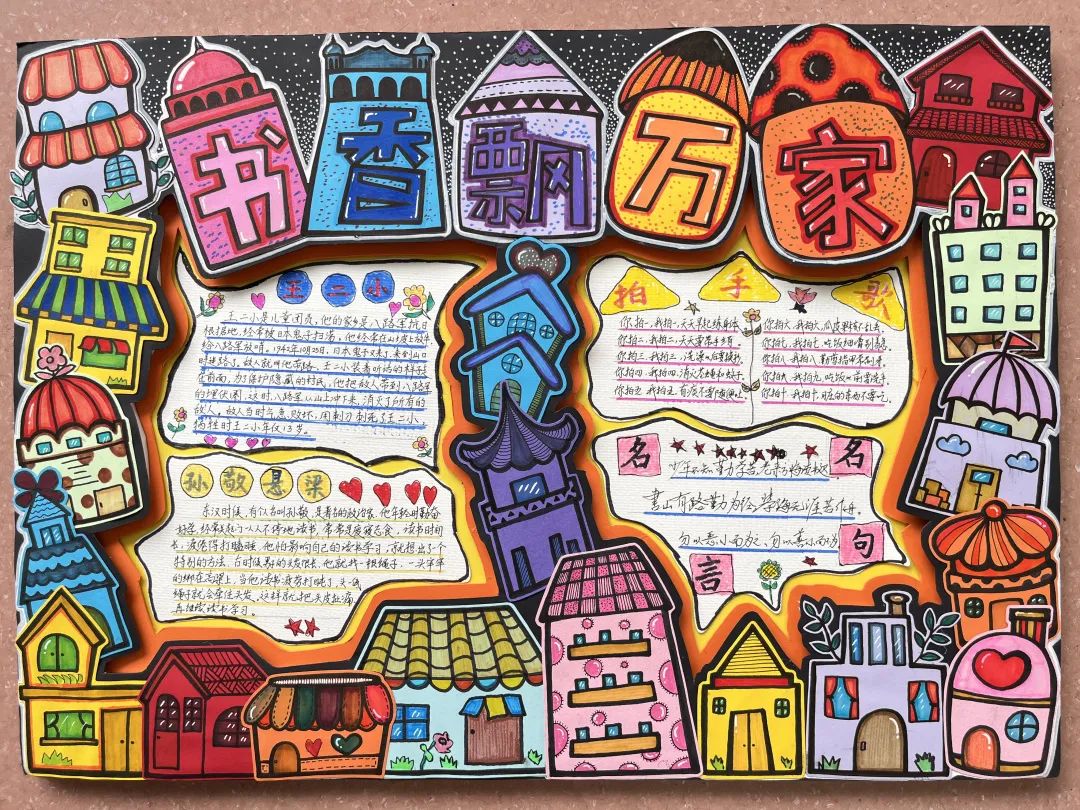 书香飘万家
王二小
王二小是儿童团员,他的家乡是八路军抗日
根据地,经常被日本鬼子扫荡,他经常在山坡上放牛
给八路军放哨。1942年10月25日,日本鬼子又来了,走到山口
时迷路了。敌人就叫他带路。王二小装着听话的样子走
在前面,为了保护隐藏的村民,他把敌人带到八路军
的埋伏圈,这时,八路军从山上冲下来,消灭了所有的
敌人。敌人当时气急败坏,用刺刀刺死了王二小,
牺牲时王二小年仅13岁。
孙敬悬梁
东汉时候,有个名叫孙敬,是著名的政治家,他年轻时勤奋
好学,经常关起门,一人不停地读书,常常是废寝忘食。读书时间
长,疲倦得打瞌睡,他怕影响自己的读书学习,就想出了个
特别的方法,古时候男的头发很长,他就找一根绳子,一头牢牢
的绑在房梁上,当他读书疲劳打盹了,头一低
绳子就会牵住头发,这样就把头皮扯痛
再继续读书学习。
拍手歌
你拍一,我拍一,天天早起练身体
你拍二,我拍二,天天要带手绢
你拍三,我拍三,洗澡以后换衬衫
你拍四,我拍四,消灭苍蝇和蚊子
你拍五,我拍五,有痰不要随地吐
你拍六,我拍六,瓜皮果核不乱丢
你拍七,我拍七,吃饭细嚼别着急
你拍八,我拍八,勤剪指甲常刷牙
你拍九,我拍九,吃饭以前要洗手
你拍十,我拍十,脏的东西不要吃
名言名句
少年不知勤学苦,老来方悔读书迟
书山有路勤为径,学海无涯苦作舟。
勿以恶小而为之,勿以善小而不为